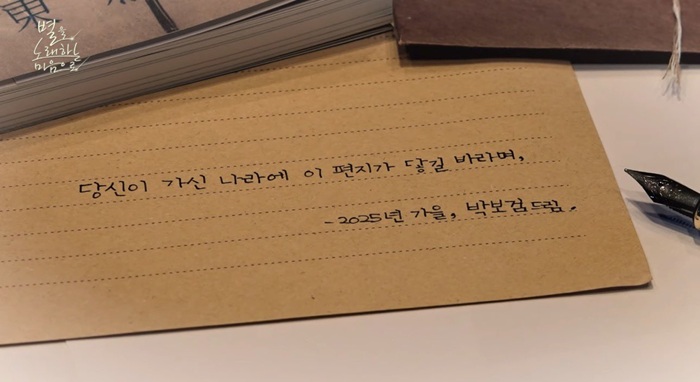 별을
노래하는
마음으로
東
당신이 가신 나라에 이 편지가 닿길 바라며,
- 2025년 가을, 박보검 드림.